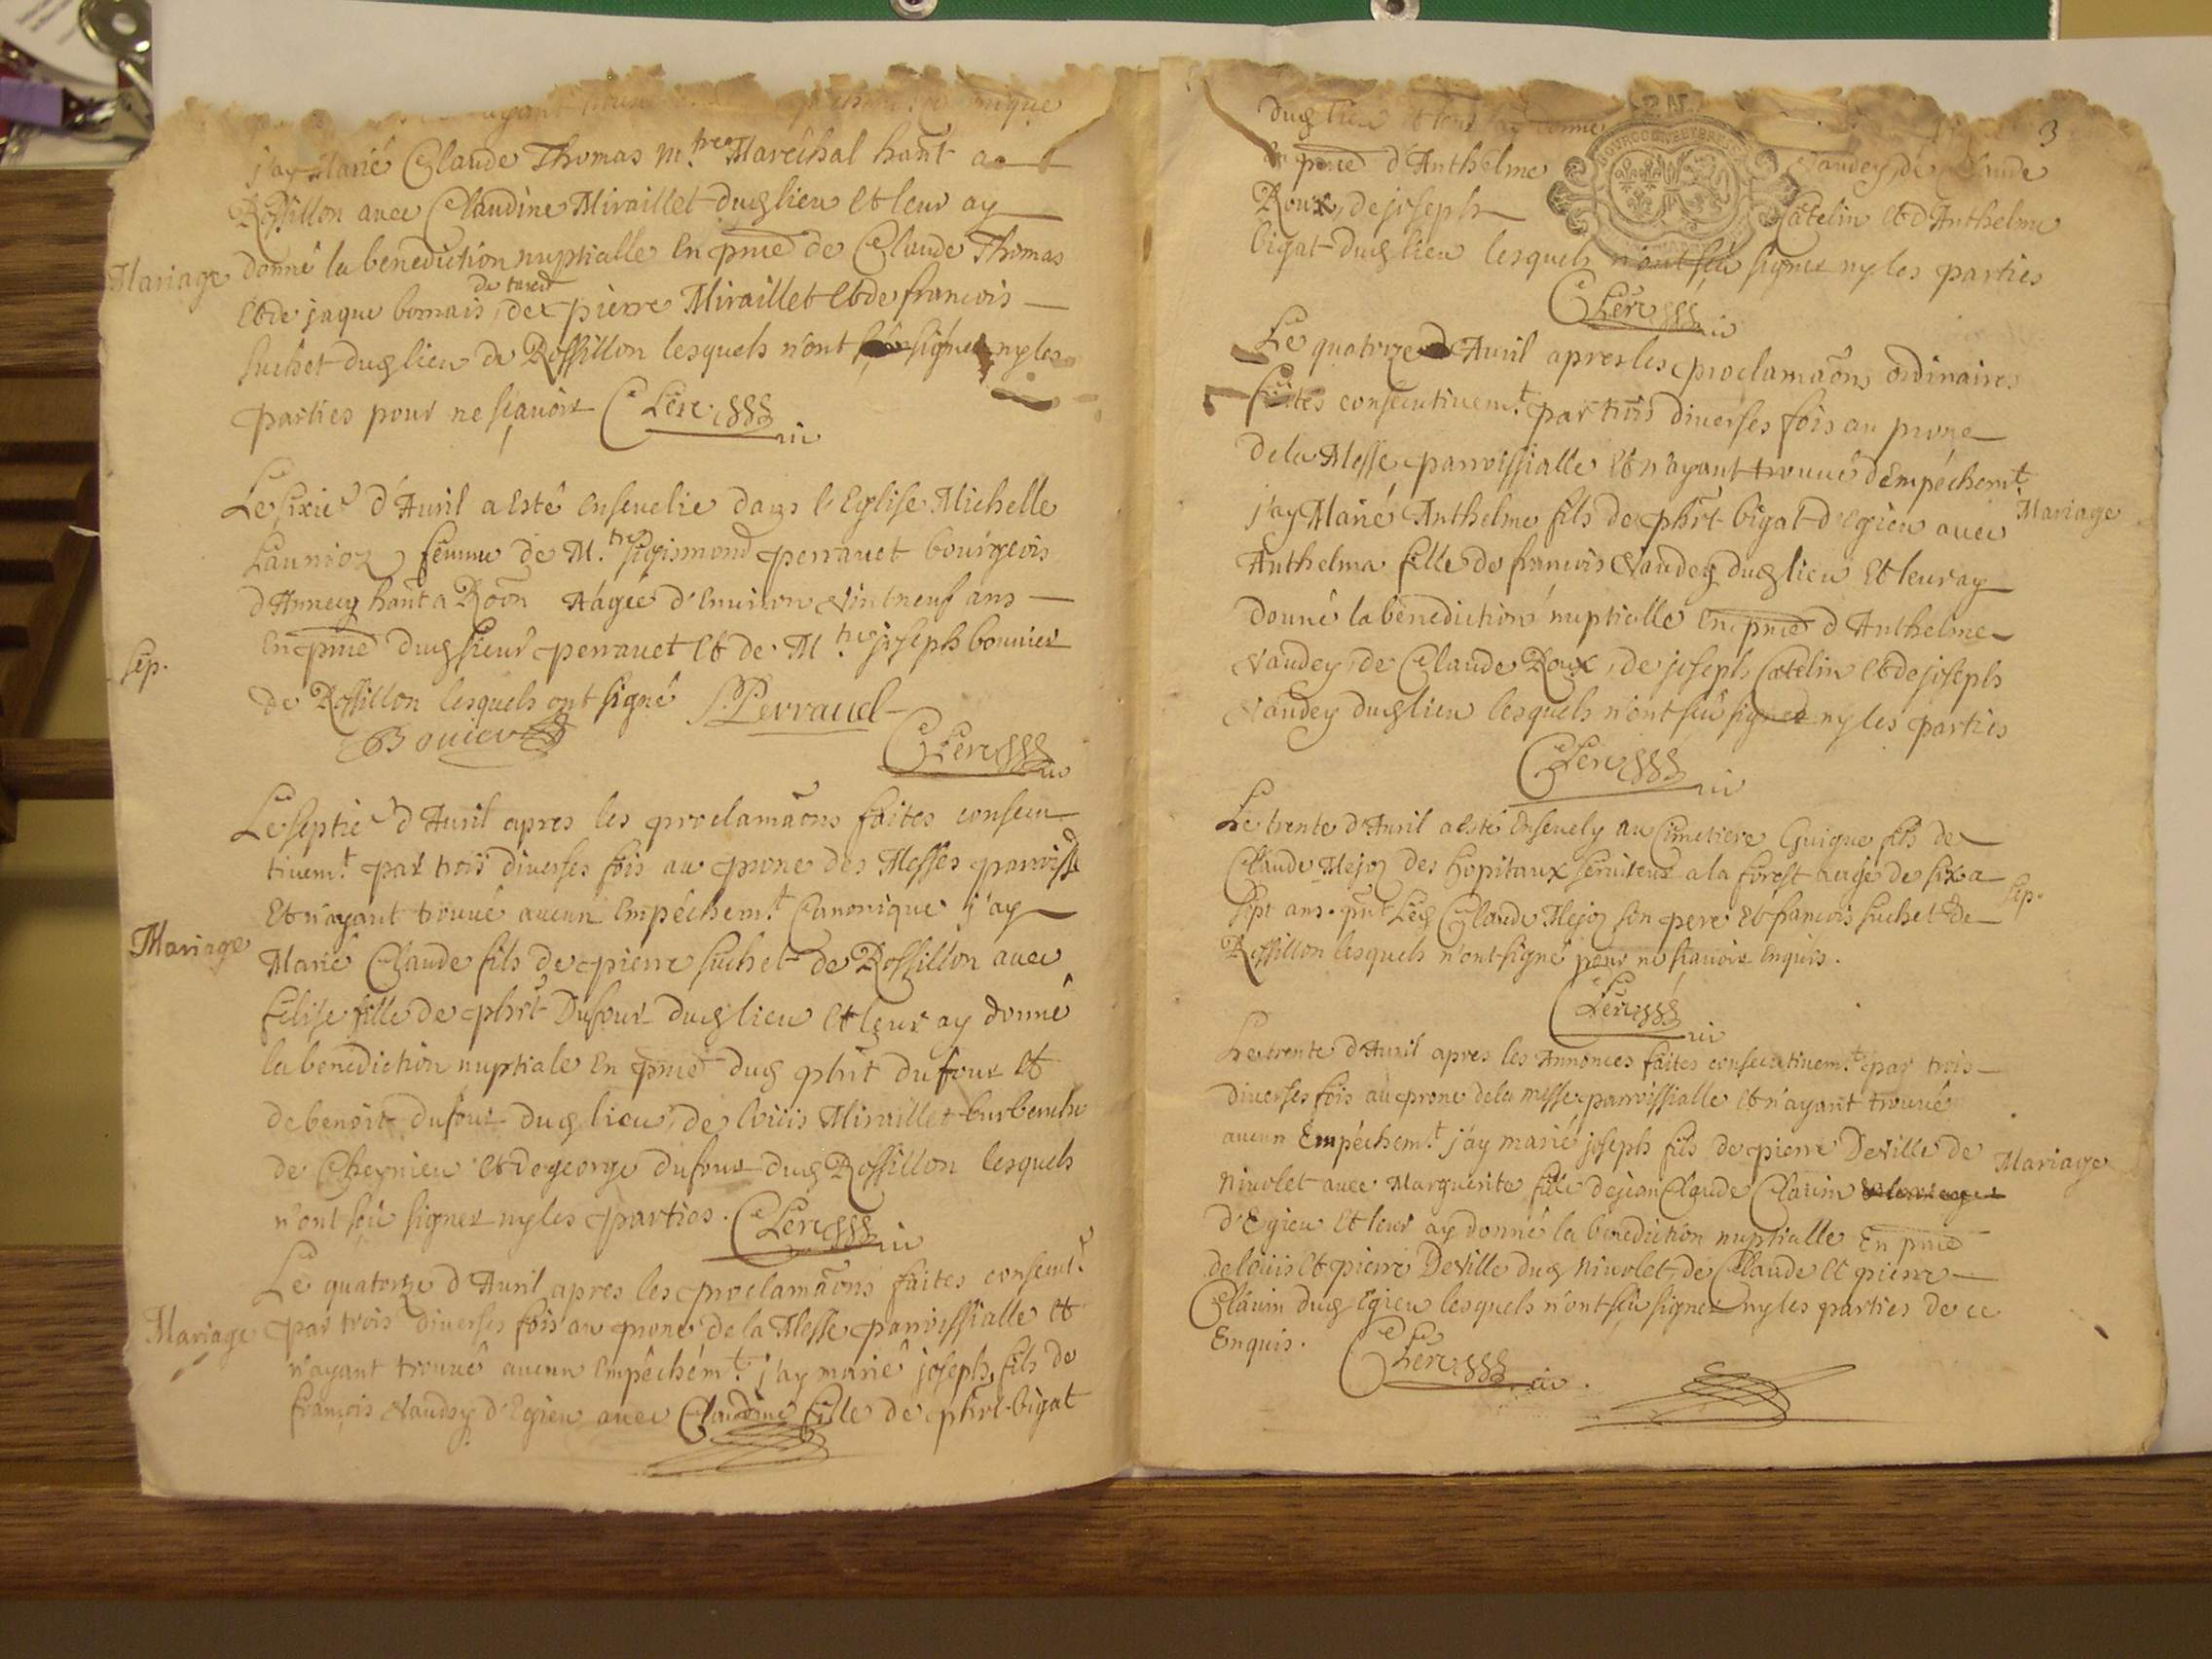 j'ay Marié Claude Thomas m.tre Maréchal hañt a
Rossillon avec Claudine Miraillet dud lieu et leur ay
Mariage
donné la benediction nuptialle En pñce de Claude Thomas
et de jaque bomais, de pierre Miraillet et de francois
Suchet dud lieu de Rossillon lesquels n'ont signé ny les
parties pour ne sçavoir Clerc
Le sixiê d'Avril a esté Ensevelie dans l'Eglise Michelle
femme de M.tre sigismond perravet bourgeois
d'Annecy hañt a Aagée d'Environ Vintneuf ans
En pñce dud sieur perravet et de M.tre joseph bouvier
sep.
de Rossillon lesquels ont signé Perraud
Bovier
Clerc
Le septiê d'Avril apres les proclamaõns faites consecu
tivem.t par trois diverses fois au prone des Messes parroiss
Et n'ayant trouvé aucun Empéchem.t Canonique j'ay
Mariage
Marié Claude fils de pierre suchet de Rossillon avec
felise fille de phrt Dufour dud lieu et leur ay donné
la benediction nuptiale En pñce dud phrt dufour et
de benoit dufour dud lieu, de loüis Miraillet burbenche
de Cheynieu et de george dufour dud Rossillon lesquels
n'ont sçû signer ny les parties. Clerc
Le quatorze d'Avril apres les proclamaõns faites consecut.
Mariage
par trois diverses fois au prone de la Messe parroissialle et
n'ayant trouvé aucun Empêchém.t j'ay marié joseph, fils de
françois Vaudey d'Egieu avec Claudine fille de phrt bigat
3
dud lieu et leur ay donné
En pñce d'Anthelme Vaudey, de Claude
Roux, de joseph Catelin et d'Anthelme
bigat dud lieu lesquels n'ont sçû signer ny les parties
Clerc
Le quatorze d'Avril apres les proclamaõns ordinaires
faites consecutivem.t par trois diverses fois au prone
de la Messe parroissialle et n'ayant trouvé d'Empéchem.t
j'ay Marié Anthelme fils de phrt bigat d'Egieu avec
Mariage
Anthelma fille de francois Vaudey dud lieu et leur ay
donné la benediction nuptialle En pñce d'Anthelme
Vaudey, de Claude Roux, de joseph Catelin et de joseph
Vaudey dud lieu lesquels n'ont sçû signer ny les parties
Clerc
Le trente d'Avril a esté Ensevely au Cimetiere Guigue fils de
Claude Mejoz des hopitaux serviteur a la forest aagé de six a
sep.
sept ans. pñt Led Claude Mejoz son pere et francois suchet de
Rossillon lesquels n'ont signé pour ne sçavoir Enquis.
Clerc
Le trente d'Avril apres les Annonces faites consecutivem.t par trois
diverses fois au prone de la messe parroissialle et n'ayant trouvé
aucun Empéchem.t j'ay marié joseph fils de pierre Deville de
Mariage
Nivolet avec Marguerite fille de jean Claude Clavin
d'Egieu et leur ay donné la benediction nuptialle En pñce
de loüis et pierre Deville dud Nivolet, de Claude et pierre
Clavin dud Egieu lesquels n'ont sçû signer ny les parties de ce
Enquis. Clerc